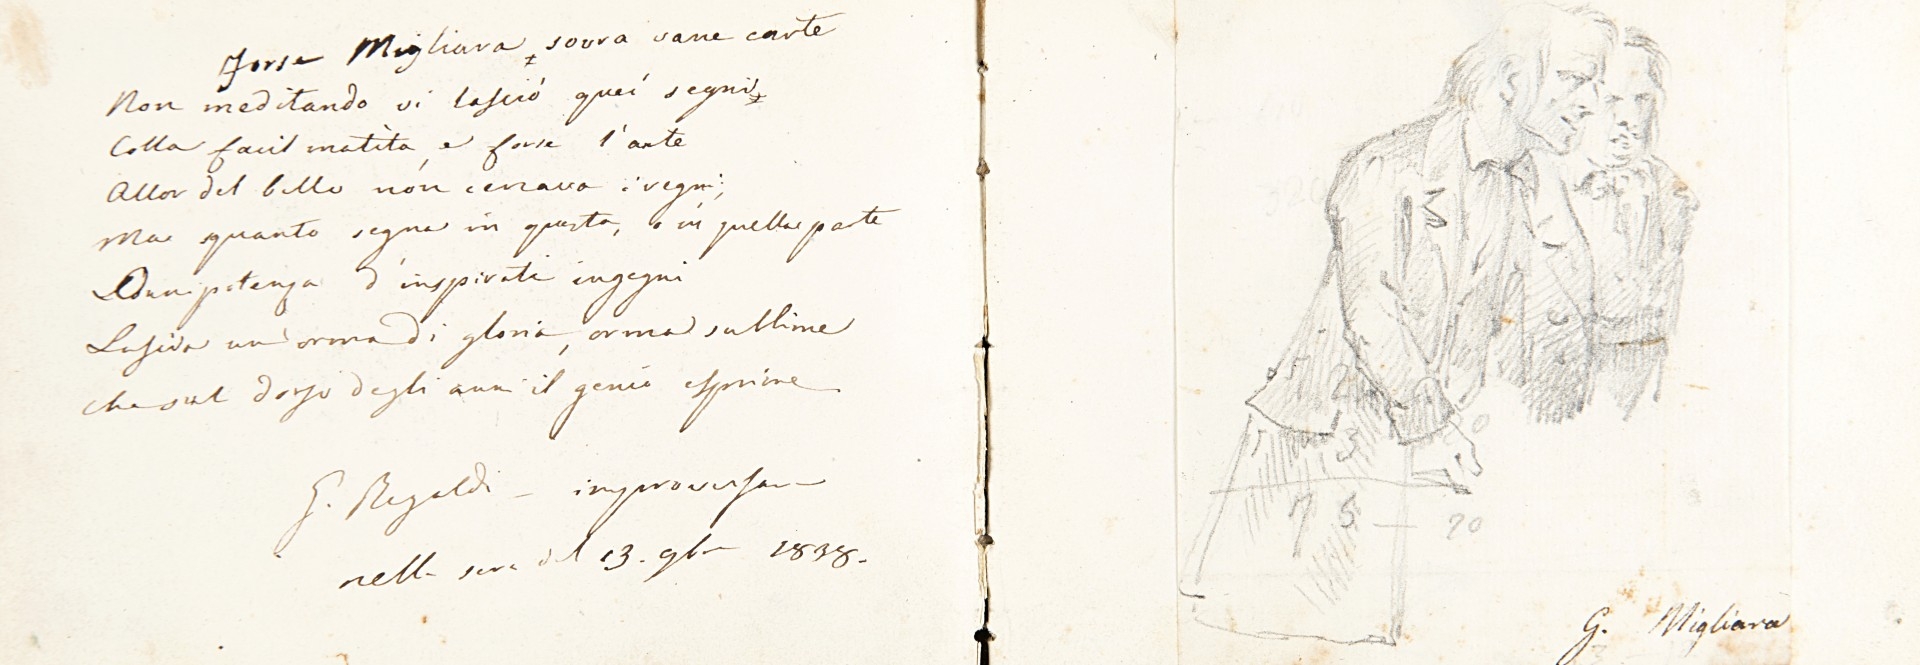 Forse Migliara, sovra vane carte
Non meditando vi lasciò quei segni
Colla facil matita, e forse l'arte
Allor del bello non cercava i regni;
Ma quanto segna in questa, o in quella parte
L'onnipotenza d'inspirati ingegni
Lascia un'orma di gloria, orma sublime
Che sul dorso degli anni il genio esprime
G. Regaldi - improvvisava
nella sera del 13. 9bre 1838.
320
5 2
3 0
7 5 — 70
G. Migliara
3